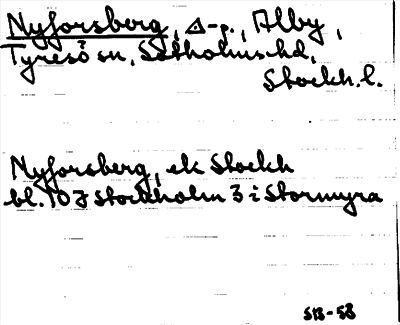 Nyforsberg, Δ-p., Alby,
Tyresö sn, Sotholms hd,
Stockh. l.
Nyforsberg, ek Stockh
bl. 10 J Stockholm 3 i Stormyra
S13-53